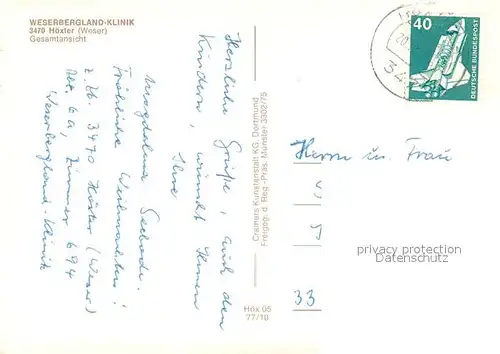 WESERBERGLAND-KLINIK
3470 Höxter (Weser)
Gesamtansicht
Herzliche Grüße, auch den
Kindern, wünscht Ihnen
Ihre
Magdalena
Fröhliche Weihnachten!
z. Zt. 3470 Höxter (Weser)
Abt. 6a, Zimmer 694
Weserbergland-Klinik
Cramers Kunstanstalt KG, Dortmund
Freigeg. d. Reg.-Präs. Münster 3302/75
Höx 05
77/10
40
DEUTSCHE BUNDESPOST
20.
34
Herrn u. Frau
S
J
33
privacy protection
Datenschutz